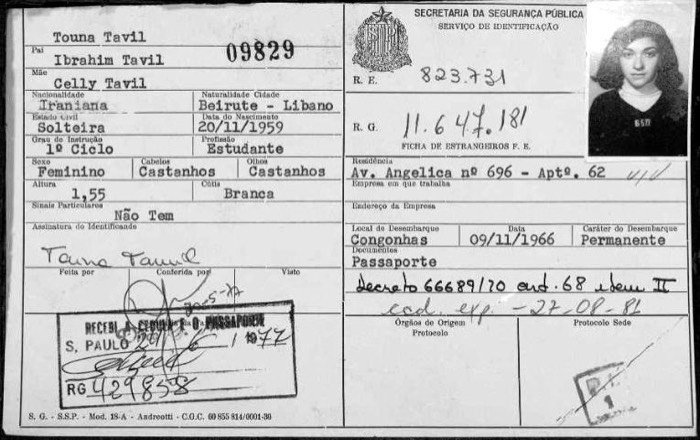 Touna Tavil
09829
Pai
Ibrahim Tavil
Mãe
Celly Tavil
Nacionalidade Naturalidade Cidade
Iraniana Beirute - Libano
Estado Civil Data do Nascimento
Solteira 20/11/1959
Grau de Instrução Profissão
1º Ciclo Estudante
Sexo Cabelos Olhos
Feminino Castanhos Castanhos
Altura Cútis
1,55 Branca
Sinais Particulares
Não Tem
Assinatura do Identificando
Touna Tauil
Feita por Conferida por Visto
30-5-77
RECEBI A CEDULA E O PASSAPORTE
S. PAULO 6 / 1977
RG 429858
S. G. - S.S.P. - Mod. 18-A - Andreotti - C.G.C. 60 855 814/0001-36
SECRETARIA DA SEGURANÇA PÚBLICA
SERVIÇO DE IDENTIFICAÇÃO
R. E. 823.731
R. G. 11.647.181
FICHA DE ESTRANGEIROS F. E.
Residência
Av. Angelica nº 696 - Aptº. 62
Empresa em que trabalha
Endereço da Empresa
Local do Desembarque Data Caráter do Desembarque
Congonhas 09/11/1966 Permanente
Documentos
Passaporte
Decreto 66689/70 art. 68 item II
ced. exp. - 27-08-81
Órgãos de Origem Protocolo Sede
Protocolo